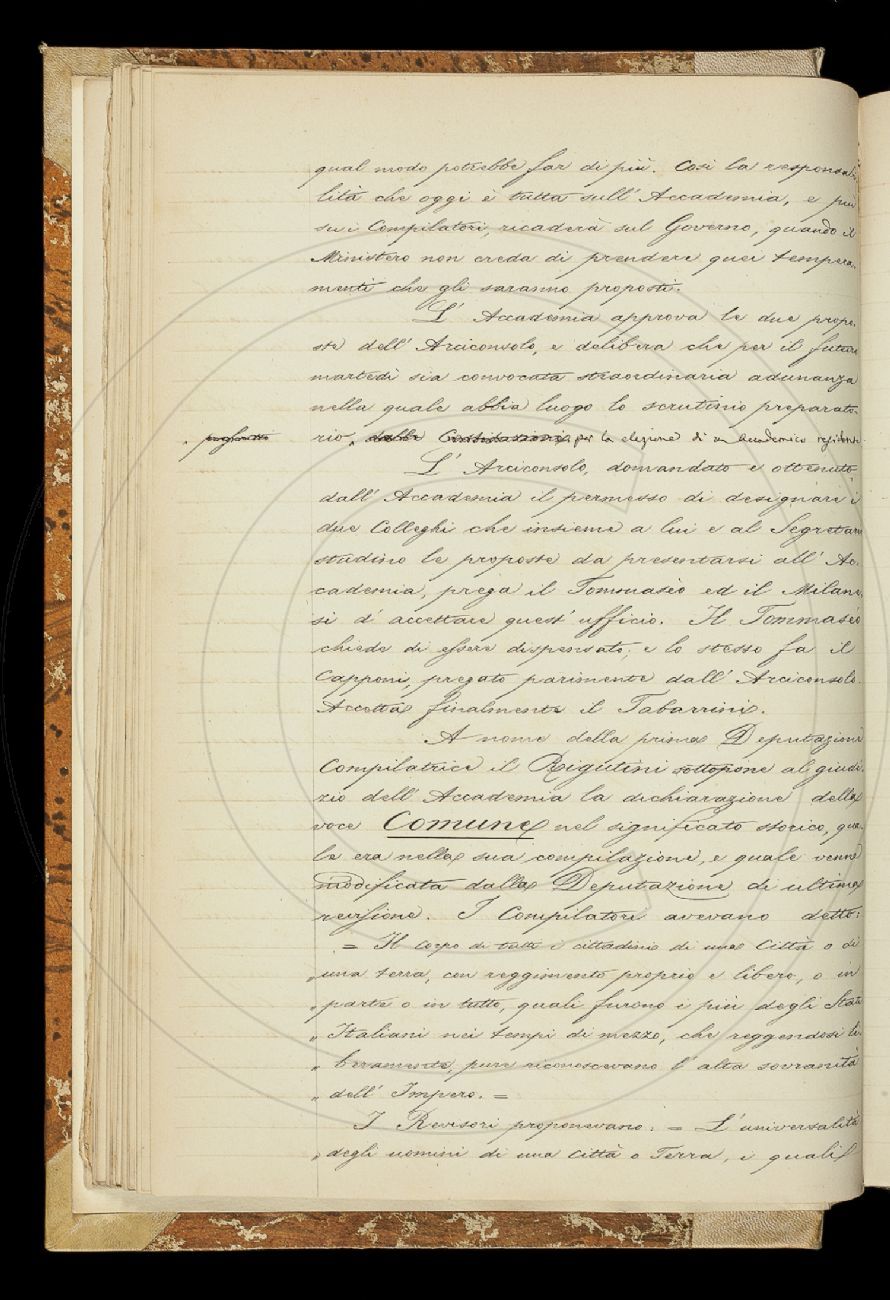 qual modo potrebbe far di più. Così la responsabi-
lità che oggi è tutta sull' Accademia, e più
su i Compilatori, ricaderà sul Governo, quando il
Ministero non creda di prendere quei tempera-
menti che gli saranno proposti.
L' Accademia approva le due propo-
ste dell' Arciconsolo, e delibera che per il futuro
martedì sia convocata straordinaria adunanza
nella quale abbia luogo lo scrutinio preparato-
rio, dalle Costituzioni per la elezione di un Accademico residente.
L' Arciconsolo, domandato e ottenuto
dall' Accademia il permesso di designare i
due Colleghi che insieme a lui e al Segretario
studino le proposte da presentarsi all' Ac-
cademia, prega il Tommasèo ed il Milane-
si d' accettare quest' ufficio. Il Tommasèo
chiede di essere dispensato; e lo stesso fa il
Capponi, pregato parimente dall' Arciconsolo.
Accetta finalmente il Tabarrini.
A nome della prima Deputazione
Compilatrice il Rigutini sottopone al giudi-
zio dell' Accademia la dichiarazione della
voce Comune nel significato storico, qua-
le era nella sua compilazione, e quale venne
modificata dalla Deputazione di ultima
revisione. I Compilatori avevano detto:
= Il corpo di tutti i cittadini di una Città o di
„ una terra, con reggimento proprio e libero, o in
„ parte o in tutto, quali furono i più degli Stati
„ Italiani nei tempi di mezzo, che reggendosi li-
„ beramente, pure riconoscevano l' alta sovranità
„ dell' Impero. =
I Revisori proponevano: = L' universalità
„ degli uomini di una Città o Terra, i quali